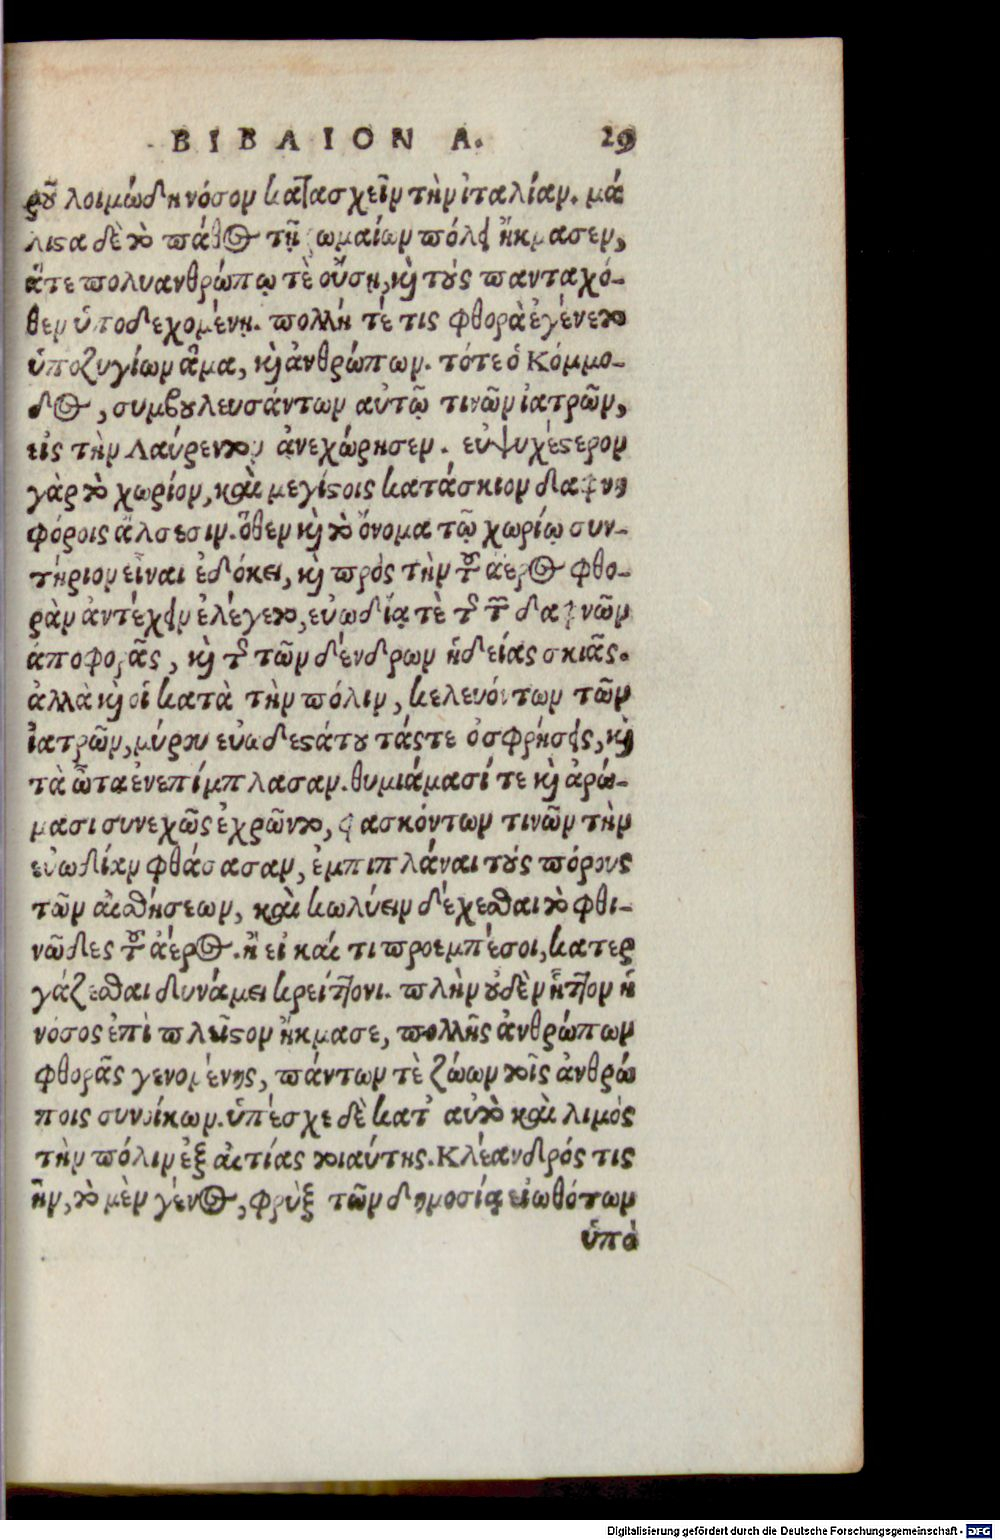 ΒΙΒΛΙΟΝ Α. 29
ροῦ λοιμώδη νόσον κατασχεῖν τὴν ἰταλίαν. μά
λιστα δὲ τὸ πάθος τῇ ῥωμαίων πόλει ἤκμασεν,
ἅτε πολυανθρώπῳ τὲ οὔσῃ, καὶ τοὺς πανταχό-
θεν ὑποδεχομένῃ. πολλή τέ τις φθορὰ ἐγένετο
ὑποζυγίων ἅμα, καὶ ἀνθρώπων. τότε ὁ Κόμμο-
δος, συμβουλευσάντων αὐτῷ τινῶν ἰατρῶν,
εἰς τὴν Λαύρεντον ἀνεχώρησεν. εὐψυχέστερον
γὰρ τὸ χωρίον, καὶ μεγίστοις κατάσκιον δαφνη
φόροις ἄλσεσιν. ὅθεν καὶ τὸ ὄνομα τῷ χωρίῳ συν-
τήριον εἶναι ἐδόκει, καὶ πρὸς τὴν τοῦ ἀέρος φθο-
ρὰν ἀντέχειν ἐλέγετο, εὐωδίᾳ τὲ τῆς τῶν δαφνῶν
ἀποφορᾶς, καὶ τῆς τῶν δένδρων ἡδείας σκιᾶς.
ἀλλὰ καὶ οἱ κατὰ τὴν πόλιν, κελευόντων τῶν
ἰατρῶν, μύρου εὐωδεστάτου τάς τε ὀσφρήσεις, καὶ
τὰ ὦτα ἐνεπίμπλασαν. θυμιάμασί τε καὶ ἀρώ-
μασι συνεχῶς ἐχρῶντο, φασκόντων τινῶν τὴν
εὐωδίαν φθάσασαν, ἐμπιπλάναι τοὺς πόρους
τῶν αἰσθήσεων, καὶ κωλύειν δέχεσθαι τὸ φθι-
νῶδες τοῦ ἀέρος. ἢ εἰ καί τι προεμπέσοι, κατερ
γάζεσθαι δυνάμει κρείττονι. πλὴν οὐδὲν ἧττον ἡ
νόσος ἐπὶ πλεῖστον ἤκμασε, πολλῆς ἀνθρώπων
φθορᾶς γενομένης, πάντων τὲ ζώων τοῖς ἀνθρώ
ποις συνοίκων. ὑπέσχε δὲ κατ’ αὐτὸ καὶ λιμὸς
τὴν πόλιν ἐξ αἰτίας τοιαύτης. Κλέανδρός τις
ἦν, τὸ μὲν γένος, φρὺξ τῶν δημοσίᾳ εἰωθότων
ὑπὸ
Digitalisierung gefördert durch die Deutsche Forschungsgemeinschaft - DFG